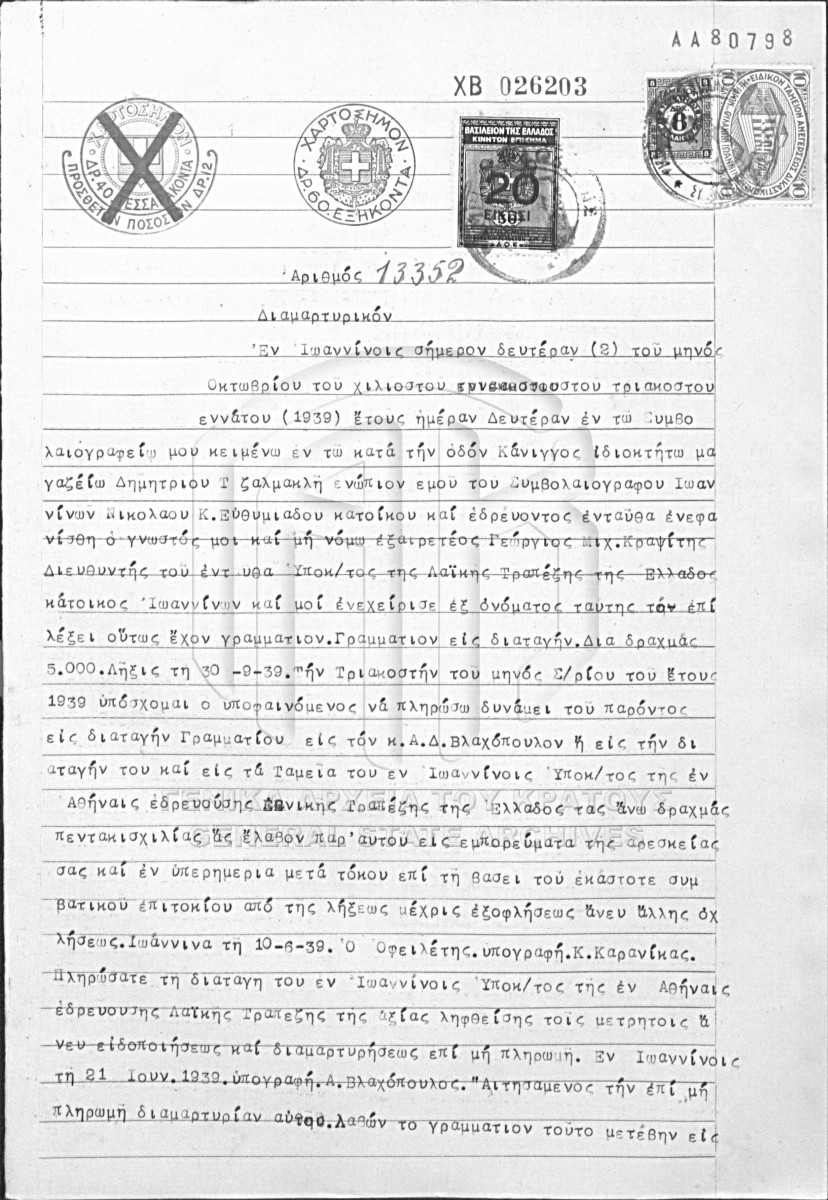 ΑΑ80798
ΧΒ 026203
ΧΑΡΤΟΣΗΜΟΝ
ΔΡ. 40 ΤΕΣΣΑΡΑΚΟΝΤΑ
ΠΡΟΣΘΕΤΟΝ ΠΟΣΟΣΤΟΝ ΔΡ.12
ΧΑΡΤΟΣΗΜΟΝ
ΔΡ. 60. ΕΞΗΚΟΝΤΑ
ΒΑΣΙΛΕΙΟΝ ΤΗΣ ΕΛΛΑΔΟΣ
ΚΙΝΗΤΟΝ ΕΠΙΣΗΜΑ
20
ΕΙΚΟΣΙ
8
10 10
Αριθμός 13352
Διαμαρτυρικόν
Ἐν Ἰωαννίνοις σήμερον δευτέραν (2) τοῦ μηνός
Οκτωβρίου τοῦ χιλιοστου εννεακοσιοστου τριακοστου
εννάτου (1939) ἔτους ἡμέραν Δευτέραν ἐν τῶ Συμβο
λαιογραφείῳ μου κειμένω ἐν τῶ κατά τήν ὁδόν Κάνιγγος ἰδιοκτήτω μα
γαζείω Δημητριου Τζαλμακλῆ ἐνώπιον εμοῦ του Συμβολαιογραφου Ιωαν
νίνων Νικολαου Κ.Εὐθυμιαδου κατοίκου καί ἑδρεύοντος ἐνταῦθα ἐνεφα
νίσθη ὁ γνωστός μοι καί μή νόμω ἐξαιρετέος Γεώργιος Μιχ.Κραψίτης
Διευθυντής τοῦ ἐντ υθα Ὑποκ/τος τῆς Λαϊκῆς Τραπέζης της Ελλαδος
κάτοικος Ἰωαννίνων καί μοί ἐνεχείρισε ἐξ ὀνόματος ταύτης τόν ἐπί
λέξει οὕτως ἔχον γραμματιον.Γραμματιον εἰς διαταγήν.Δια δραχμάς
5.000.Λῆξις τη 30 -9-39.Τήν Τριακοστήν τοῦ μηνός Σ/ρίου τοῦ ἔτους
1939 ὑπόσχομαι ο ὑποφαινόμενος νά πληρώσω δυνάμει τοῦ παρόντος
εἰς διαταγήν Γραμματίου εἰς τόν κ.Α.Δ.Βλαχόπουλον ἤ εἰς τήν δι
αταγήν του καί εἰς τά Ταμεῖα του εν Ἰωαννίνοις Ὑποκ/τος τῆς ἐν
Ἀθήναις ἑδρευούσης Εθνικῆς Τραπέζης τῆς Ἑλλάδος τας ἄνω δραχμάς
πεντακισχιλίας ἅς ἔλαβον παρ'αυτου εις εμπορεύματα τῆς αρεσκείας
σας καί ἐν ὑπερημερια μετά τόκου ἐπί τῆ βασει τοῦ ἑκάστοτε συμ
βατικοῦ ἐπιτοκίου από της λήξεως μέχρις ἐξοφλήσεως ἄνευ ἄλλης ὀχ
λήσεως.Ιωάννινα τῆ 10-6-39.Ὁ Οφειλέτης.υπογραφή.Κ.Καρανίκας.
Πληρώσατε τῆ διαταγη του εν Ἰωαννίνοις Ὑποκ/τος τῆς ἐν Ἀθήναις
ἑδρευουσης Λαϊκῆς Τραπεζης τῆς ἀξίας ληφθείσης τοῖς μετρητοις ἄ
νευ εἰδοποιήσεως καί διαμαρτυρήσεως επί μή πληρωμῆ. Εν Ιωαννίνοις
τῆ 21 Ιουν.1939.ὑπογραφή.Α.Βλαχόπουλος."Αἰτησάμενος τήν ἐπί μή
πληρωμῆ διαμαρτυρίαν αὐτοῦ.Λαβών το γραμματιον τοῦτο μετέβην εἰς
ΓΕΝΙΚΑ ΑΡΧΕΙΑ ΤΟΥ ΚΡΑΤΟΥΣ
GENERAL STATE ARCHIVES